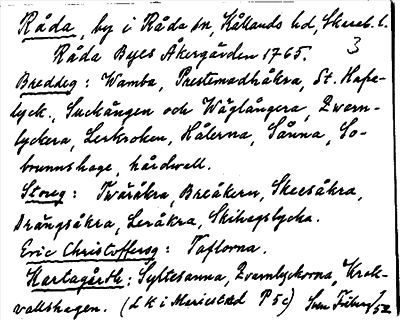 Råda, by i Råda sn, Kållands hd, Skarab. l.
Råda Byes Åkergärden 1765. 3
Breddeg: Wamba, Prestemadhåkra, St. Hafre-
lyck, Suckängen och Wäglångera, Zwarn-
lyckera, Lerkroken, Hålerna, Sånna, So-
brunnshage, hårdwall.
Storeg: Twäråkra, Breåkern, Skeesåkra,
Drängsåkra, Leråkra, Skihagslycka.
Eric Christoffersg: Taflorna.
Hartagårdh: Syltesanna, Zvarnlyckorna, Krok-
vallshagen. (LK i Mariestad P 5c) Sven